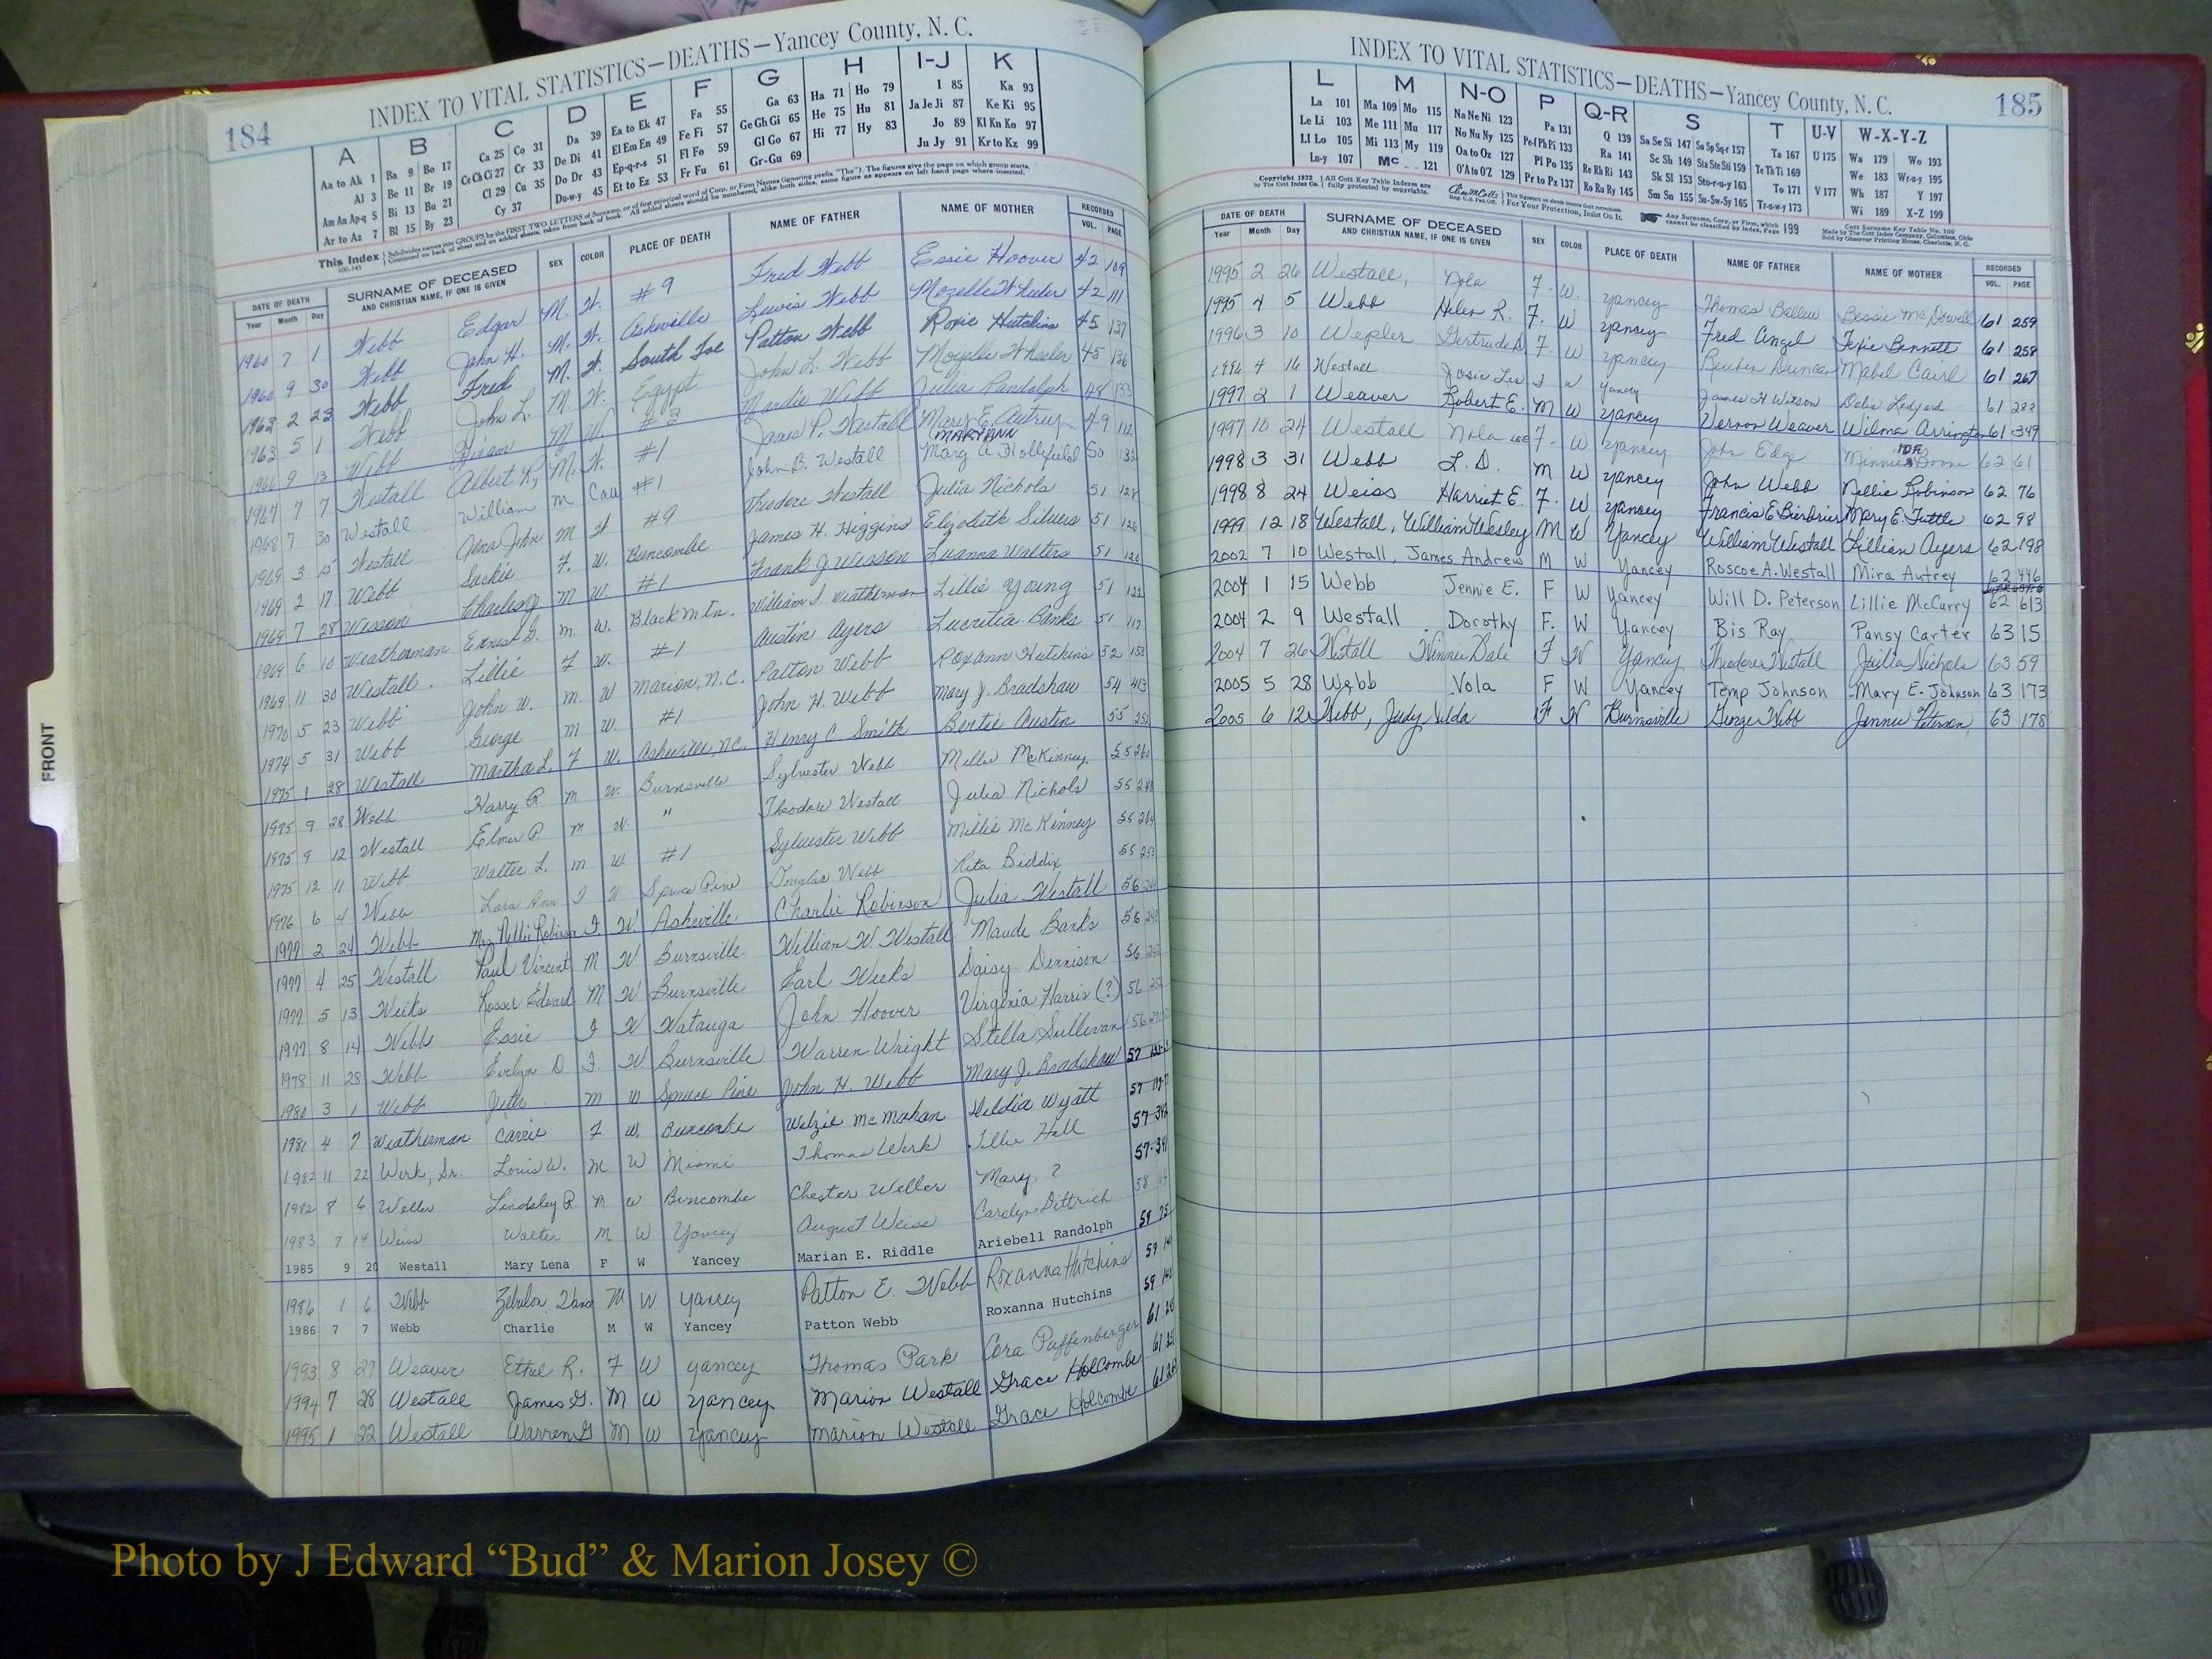 184
INDEX TO VITAL STATISTICS—DEATHS—Yancey County, N. C.
A B C D E F G H I-J K
Aa to Ak 1 Ba 9 Bo 17 Ca 25 Co 31 Da 39 Ea to Ek 47 Fa 55 Ga 63 Ha 71 Ho 79 I 85 Ka 93
Al 3 Be 11 Br 19 Ce Ch Ci 27 Cr 33 De Di 41 El Em En 49 Fe Fi 57 Ge Gh Gi 65 He 75 Hu 81 Ja Je Ji 87 Ke Ki 95
Am An Ap-q 5 Bi 13 Bu 21 Cl 29 Cu 35 Do Dr 43 Ep-q-r-s 51 Fl Fo 59 Gl Go 67 Hi 77 Hy 83 Jo 89 Kl Kn Ko 97
Ar to Az 7 Bl 15 By 23 Cy 37 Du-w-y 45 Et to Ez 53 Fr Fu 61 Gr-Gu 69 Ju Jy 91 Kr to Kz 99
This Index Subdivides names into GROUPS by the FIRST TWO LETTERS of Surname, or of first principal word of Corp. or Firm Names (ignoring prefix "The"). The figures give the page on which group starts.
Continued on back of sheet and on added sheets, taken from back of book. All added sheets should be numbered, alike both sides, same figure as appears on left hand page where inserted.
DATE OF DEATH SURNAME OF DECEASED SEX COLOR PLACE OF DEATH NAME OF FATHER NAME OF MOTHER RECORDED
Year Month Day AND CHRISTIAN NAME, IF ONE IS GIVEN VOL. PAGE
1960 7 1 Webb Edgar M. W. #9 Fred Webb Essie Hoover 42 109
1960 9 30 Webb John H. M. W. Asheville Lewis Webb Mozelle Wheeler 42 111
1963 2 23 Webb Fred M. W. South Toe Patton Webb Roxie Hutchins 45 137
1963 5 1 Webb John L. M. W. Egypt John L. Webb Mozelle Wheeler 45 136
1966 9 13 Webb Hiram M W. #3 Mardie Webb Julia Randolph 48 133
1967 7 7 Westall Albert R, M. W. #1 James P. Westall Mary E. Autrey 49 112
1968 7 30 Westall William m Cau #1 John B. Westall MARY ANN Mary A Hollifield 50 132
1969 3 15 Westall John M W #9 Theodore Westall Julia Nichols 51 128
1969 2 17 Webb Suckie F. W. Buncombe James H. Higgins Elizabeth Silvers 51 126
1969 7 28 Wesson Charles M W. #1 Frank J Wesson Luanna Walters 51 120
1969 6 10 Weatherman Ernest G. m. W. Black Mtn. William S. Weatherman Lillie Young 51 122
1969 11 30 Westall. Lillie F W. #1 Austin Ayers Lucretia Banks 51 112
1970 5 23 Webb John W. m. W Marion, N.C. Patton Webb Roxann Hutchins 52 153
1974 5 31 Webb George m W. #1 John H. Webb Mary J. Bradshaw 54 413
1975 1 28 Westall Martha L. F W. Asheville, NC. Henry C Smith Bertie Austin 55 252
1975 9 28 Webb Harry R. m W. Burnsville Sylvester Webb Millie McKinney 55 260
1975 9 12 Westall Elmer P. m W. " Theodore Westall Julia Nichols 55 248
1975 12 11 Webb Walter L. m W. #1 Sylvester Webb Millie McKinney 55 264
1976 6 4 Webb Lora Ann F W Spruce Pine Douglas Webb Rita Biddix 55 253
1977 2 24 Webb Mrs Nellie Robinson F. W. Asheville Charlie Robinson Julia Westall 56
1977 4 25 Westall Paul Vincent M W Burnsville William W. Westall Maude Banks 56
1977 5 13 Weeks Rosser Edward M W Burnsville Earl Weeks Daisy Dennison 56
1977 8 14 Webb Essie F W Watauga John Hoover Virginia Harris (?) 56
1978 11 28 Webb Evelyn D F W Burnsville Warren Wright Stella Sullivan 56
1980 3 1 Webb Jeter m W Spruce Pine John H. Webb Mary J. Bradshaw 57
1981 4 7 Weatherman Carrie F W. Buncombe Welzie McMahan Heldia Wyatt 57
1982 11 22 Werk, Sr. Louis W. M W Miami Thomas Werk Tillie Hall 57-342
1982 8 6 Weller Lindsley R. m w Buncombe Chester Weller Mary ? 57-341
1983 7 14 Weiss Walter M W Yancey August Weiss Carolyn Dittrich 58
1985 9 20 Westall Mary Lena F W Yancey Marian E. Riddle Ariebell Randolph 59
1986 1 6 Webb Zebulon Vance M W Yancey Patton E. Webb Roxanna Hutchins 59
1986 7 7 Webb Charlie M W Yancey Patton Webb Roxanna Hutchins 59
1993 8 27 Weaver Ethel R. F W Yancey Thomas Park Cora Puffenberger 61
1994 7 28 Westall James G. M W Yancey Marion Westall Grace Holcombe 61
1995 1 22 Westall Warren G M W Yancey Marion Westall Grace Holcombe 61
INDEX TO VITAL STATISTICS—DEATHS—Yancey County, N. C. 185
L M N-O P Q-R S T U-V W-X-Y-Z
La 101 Ma 109 Mo 115 Na Ne Ni 123 Pa 131 Q 139 Sa Se Si 147 So Sp Sq-r 157 Ta 167 U 175 Wa 179 Wo 193
Le Li 103 Me 111 Mu 117 No Nu Ny 125 Pe-f Ph Pi 133 Ra 141 Sc Sh 149 Sta Ste Sti 159 Te Th Ti 169 We 183 Wr-u-y 195
Ll Lo 105 Mi 113 My 119 Oa to Oz 127 Pl Po 135 Re Rh Ri 143 Sk Sl 153 Sto-r-u-y 163 To 171 V 177 Wh 187 Y 197
Lu-y 107 Mc 121 O'A to O'Z 129 Pr to Pz 137 Ro Ru Ry 145 Sm Sn 155 Su-Sv-Sy 165 Tr-u-w-y 173 Wi 189 X-Z 199
Copyright 1932 by The Cott Index Co. All Cott Key Table Indexes are fully protected by copyrights. For Your Protection, Insist On It. Any Surname, Corp. or Firm, which cannot be classified by Index, Page 199 Cott Surname Key Table No. 100 Made by The Cott Index Company, Columbus, Ohio Sold by Observer Printing House, Charlotte, N. C.
DATE OF DEATH SURNAME OF DECEASED SEX COLOR PLACE OF DEATH NAME OF FATHER NAME OF MOTHER RECORDED
Year Month Day AND CHRISTIAN NAME, IF ONE IS GIVEN VOL. PAGE
1995 2 26 Westall, Nola F. W. Yancey Thomas Ballew Bessie McDowell 61 259
1995 4 5 Webb Helen R. F. W Yancey Fred Angel Texie Bennett 61 258
1996 3 10 Wepler Gertrude D F. W Yancey Reuben Duncan Mabel Caird 61 267
1996 4 16 Westall Josie Lee F W Yancey James H Watson Delia Ledford 61 282
1997 2 1 Weaver Robert E. M W Yancey Vernon Weaver Wilma Arrington 61 349
1997 10 24 Westall Nola Lee F. W Yancey John Edge Minnie Boone 62 61
1998 3 31 Webb L. D. M W Yancey John Webb Nellie Robinson 62 76
1998 8 24 Weiss Harriet E. F. W Yancey Francis E Bierbrier Mary E. Tuttle 62 98
1999 12 18 Westall, William Wesley M W Yancey William Westall Lillian Ayers 62 198
2002 7 10 Westall, James Andrew M W Yancey Roscoe A. Westall Mira Autrey 62 446
2004 1 15 Webb Jennie E. F W Yancey Will D. Peterson Lillie McCurry 62 613
2004 2 9 Westall Dorothy F. W Yancey Bis Ray Pansy Carter 63 15
2004 7 26 Westall Winnie Dale F W Yancey Theodore Westall Julia Nichols 63 59
2005 5 28 Webb Vola F W Yancey Temp Johnson Mary E. Johnson 63 173
2005 6 12 Webb, Judy Nilda F W Burnsville George Webb Jennie Peterson 63 178
FRONT
Photo by J Edward “Bud” & Marion Josey ©